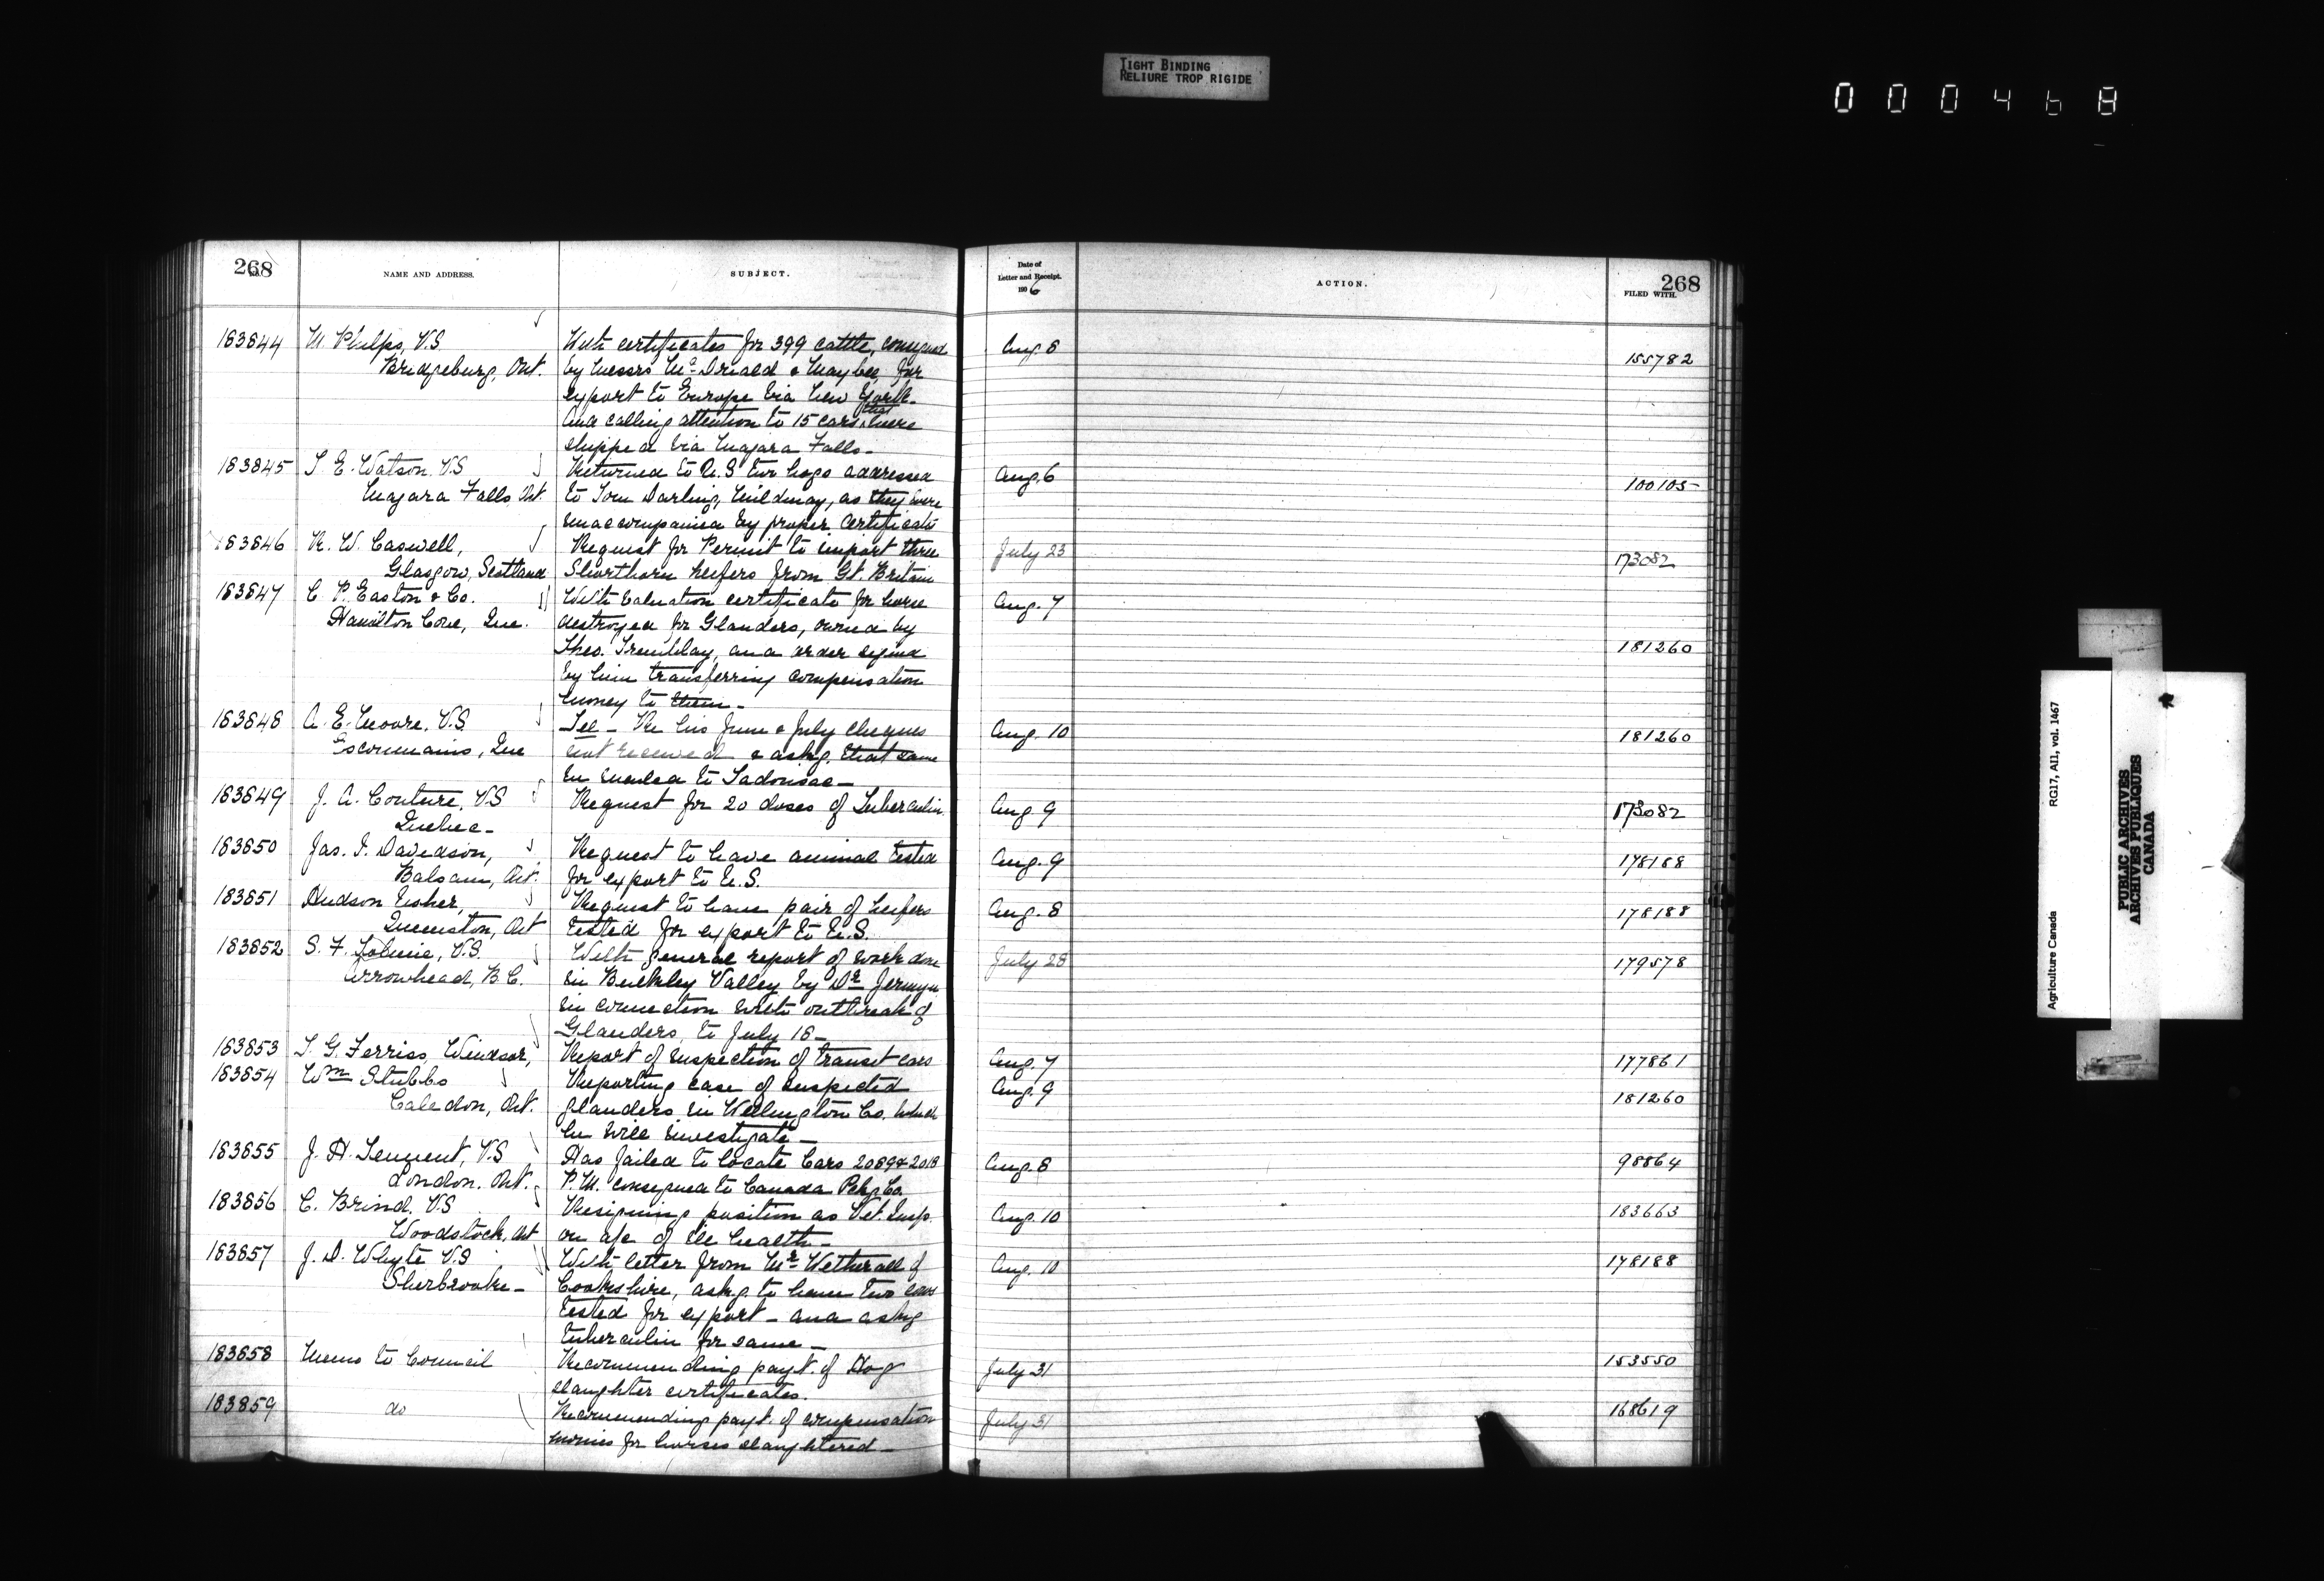 TIGHT BINDING
RELIURE TROP RIGIDE
000468
268
No.
NAME AND ADDRESS.
SUBJECT.
Date of
Letter and Receipt.
1906
ACTION.
268
FILED WITH.
183844 M. Phelps, V.S. With certificates for 399 cattle, consigned Aug. 8
Bridgeburg, Ont. by Messrs McDonald & Maybee, for 155782
export to Europe via New York.
And calling attention to 15 cars that were
shipped via Niagara Falls-
183845 T. E. Watson. V.S Returned to U.S two hogs addressed Aug. 6
Niagara Falls, Ont. to Tom Darling, Mildmay, as they were 100105
unaccompanied by proper certificate
183846 R. W. Caswell, Request for Permit to import three July 23
Glasgow, Scotland Shorthorn heifers from Gt. Britain 173082
183847 C. P. Easton & Co. With valuation certificate for horse Aug. 7
Hamilton Cove, Que. destroyed for Glanders, owned by
Theo. Tremblay, and order signed 181260
by him transferring compensation
money to them-
183848 A. E. Moore, V.S. Tel - Re his June & July cheques Aug. 10
Escoumains, Que not received & askg. that same 181260
be mailed to Tadousac-
183849 J. A. Couture, V.S Request for 20 doses of Tuberculin Aug 9 173082
Quebec-
183850 Jas. I. Davidson, Request to have animal tested Aug. 9 178188
Balsam, Ont. for export to U.S.
183851 Hudson Usher, Request to have pair of heifers Aug. 8 178188
Queenston, Ont tested for export to U.S.
183852 S. F. Tolmie, V.S. With general report of work done July 28 179578
Arrowhead, B.C. in Bulkley Valley by Dr. Jermyn
in connection with outbreak of
Glanders, to July 16-
183853 T. G. Ferriss, Windsor, Report of inspection of transit cars Aug. 7 177861
183854 Wm Stubbs Reporting case of suspected Aug. 9
Caledon, Ont. glanders in Wellington Co. which 181260
he will investigate-
183855 J. H. Tennent, V.S Has failed to locate Cars 20894 2018 Aug. 8 98864
London. Ont. P.M. consigned to Canada Pckg Co.
183856 C. Brind. V.S Resigning position as Vet. Insp. Aug. 10 183663
Woodstock, Ont on a/c of ill health-
183857 J. D. Whyte V.S With letter from Mr. Wetherall of Aug. 10 178188
Sherbrooke- Cookshire, askg to have two cows
tested for export - and askg
tuberculin for same-
183858 Memo to Council Recommending payt. of Hog July 31 153550
slaughter certificates.
183859 do Recommending payt. of compensation July 31 168619
monies for horses slaughtered-
Agriculture Canada RG17, AII, vol. 1467
PUBLIC ARCHIVES
ARCHIVES PUBLIQUES
CANADA